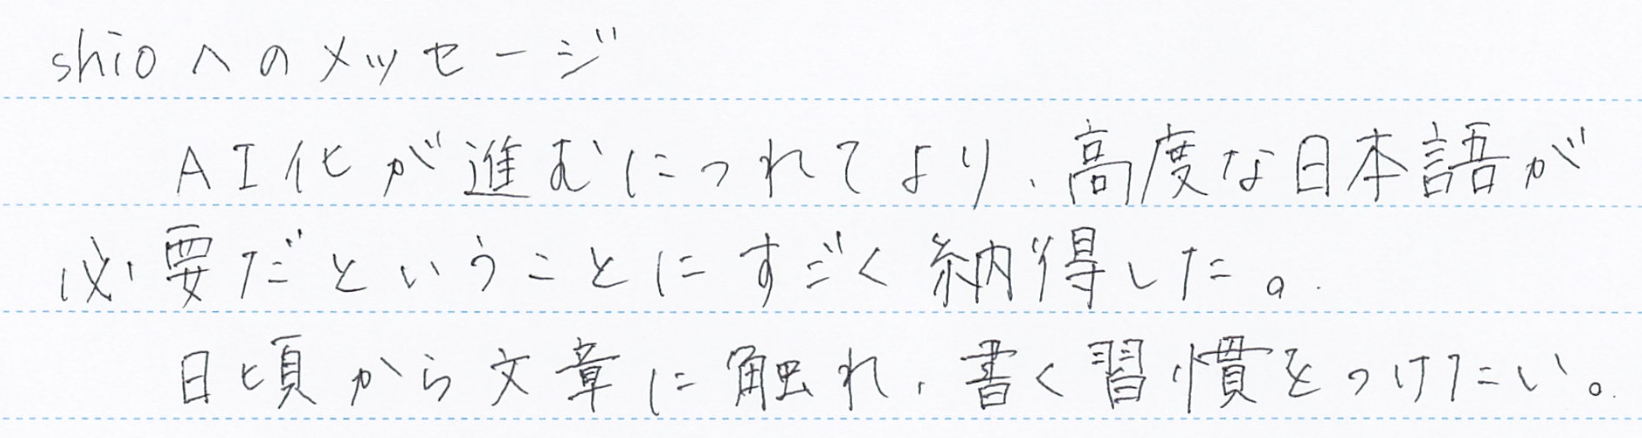 shioへのメッセージ
AI化が進むにつれてより、高度な日本語が
必要だということにすごく納得した。
日頃から文章に触れ、書く習慣をつけたい。